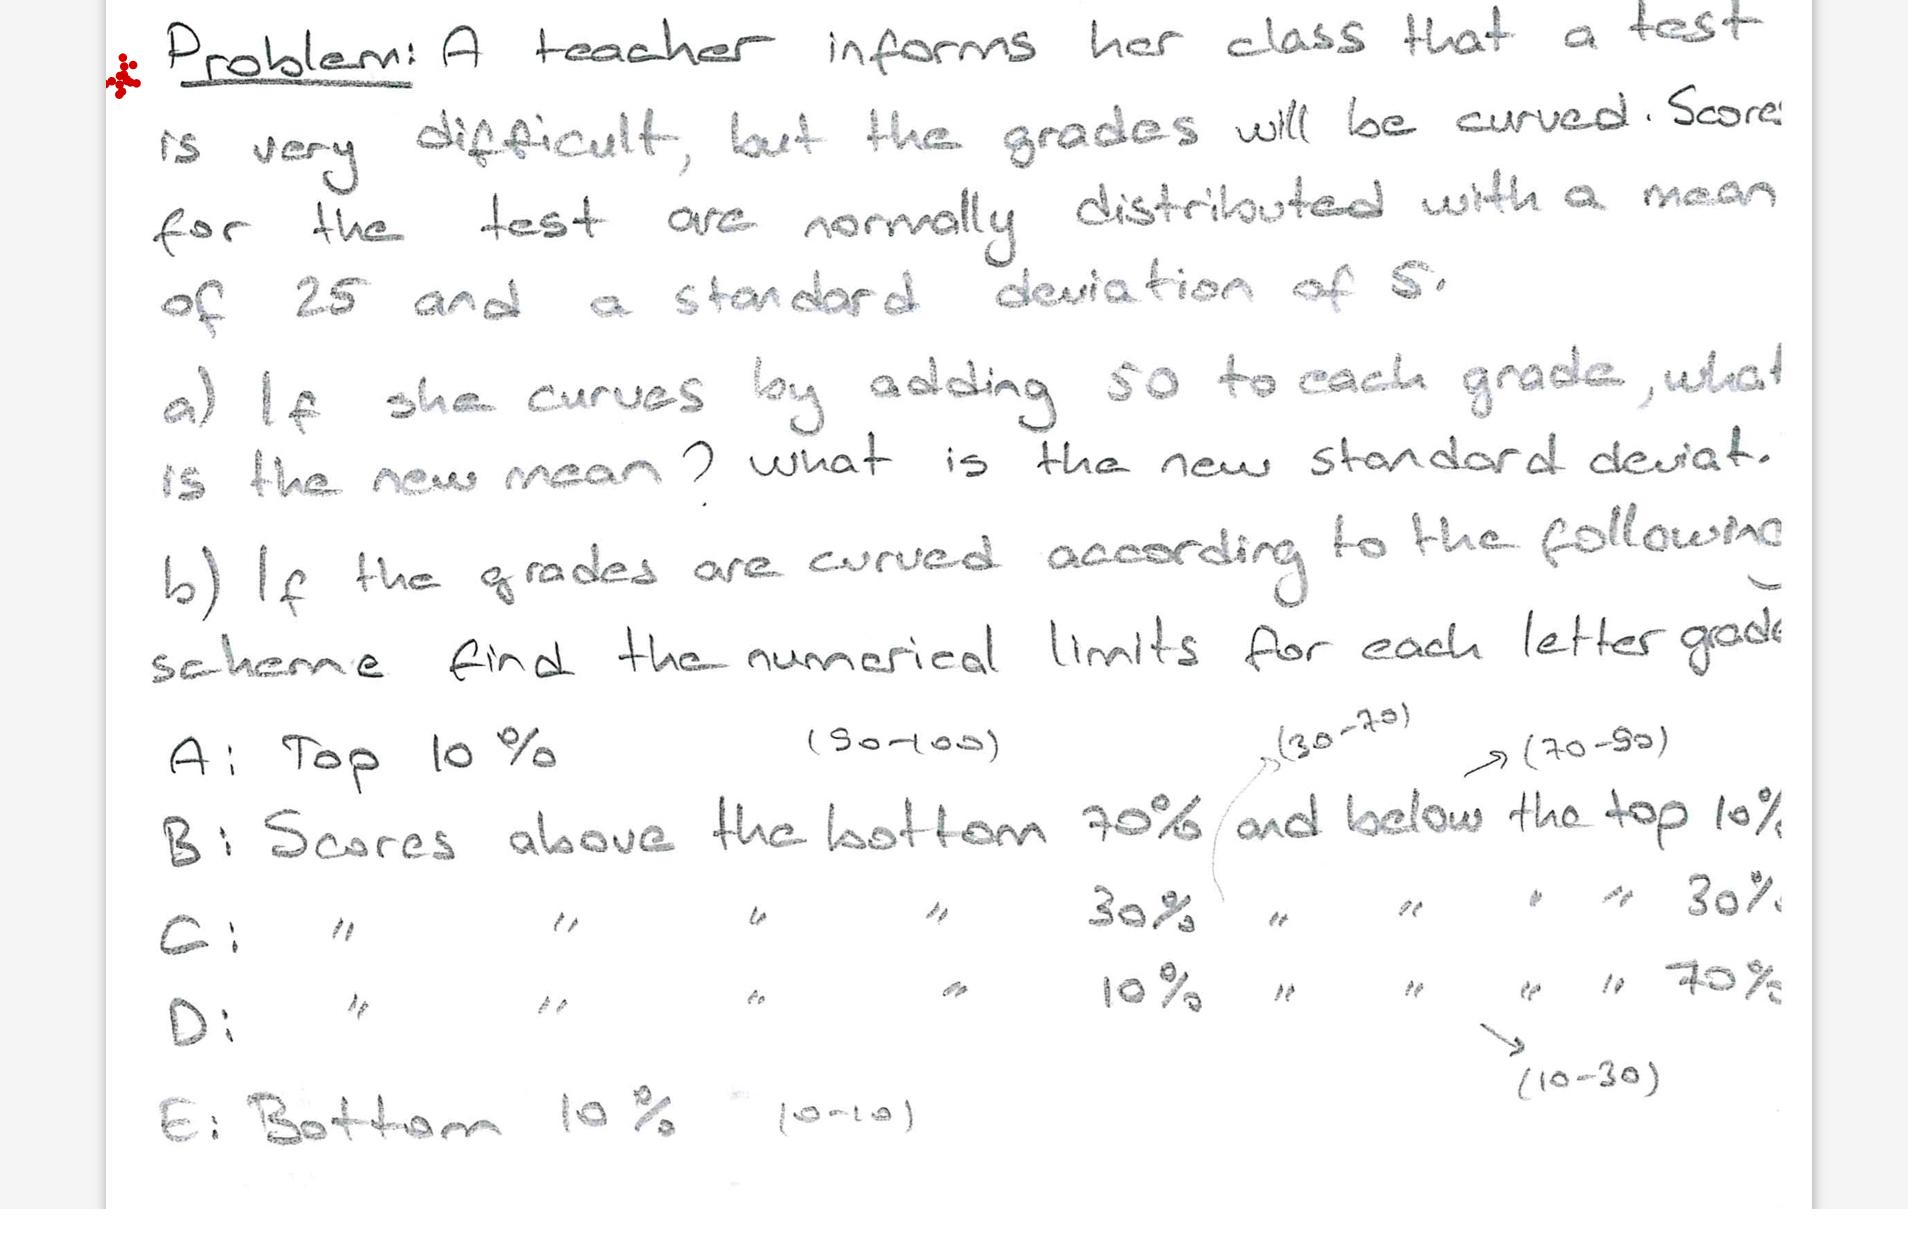 Problem: A teacher informs her class that a test
is very difficult, but the grades will be curved. Scores
for the test are normally distributed with a mean
of 25 and a standard deviation of 5.
a) If she curves by adding 50 to each grade, what
is the new mean? what is the new standard deviat.
b) If the grades are curved according to the following
scheme find the numerical limits for each letter grade
A: Top 10% (90-100) (30-70) (70-90)
B: Scores above the bottom 70% and below the top 10%
C: " " " " 30% " " " " 30%
D: " " " " 10% " " " " 70%
(10-30)
E: Bottom 10% (0-10)